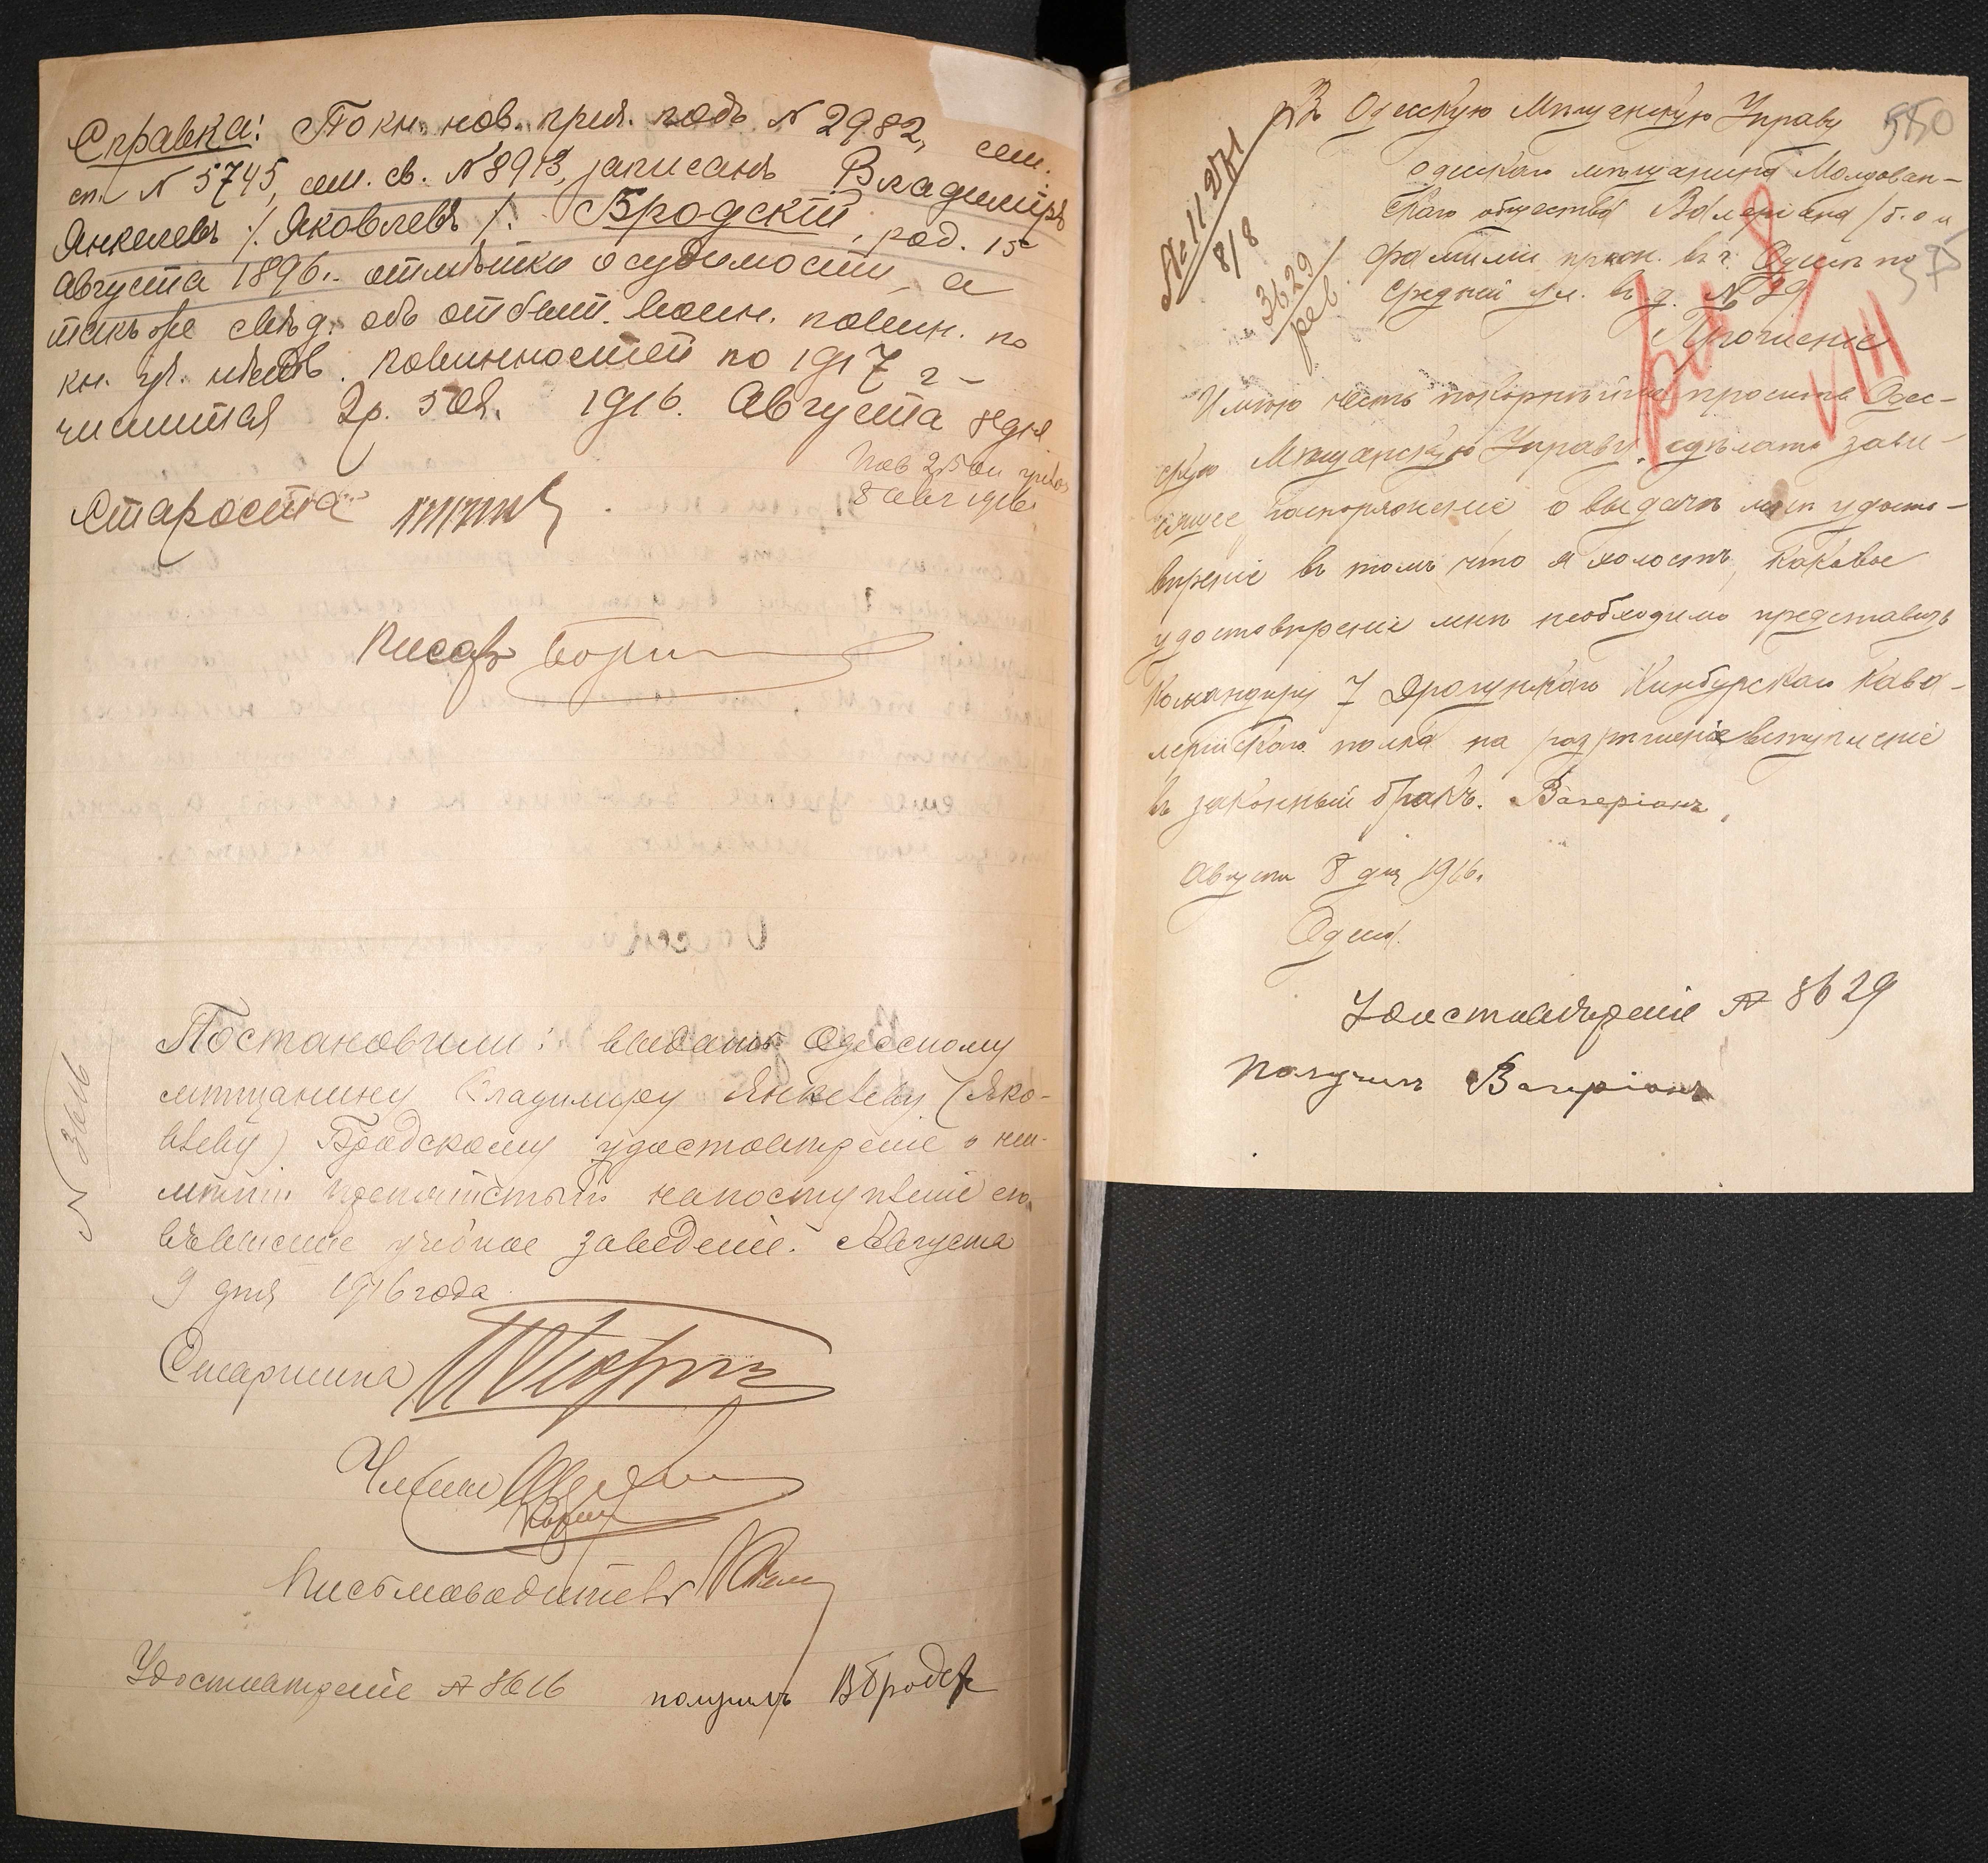 Справка: По кн. нов. прил. подъ № 2982, сем.
сп. № 5745, сем. св. № 8913, записанъ Владимиръ
Янкелевъ /. Яковлевъ /. Бродскій, род. 15
Августа 1896 г. отмѣтки о судимости, а
такъ же свѣд. объ отбыт. воин. повин. по
кн. повинностей по 1917 г –
числится 2 р. 50 к. 1916. Августа 8 дня
8 авг 1916
Староста
Писарь
№ 3616
Постановили: выдать Одесскому
мѣщанину Владимиру Янкелеву (Яко-
влеву) Бродскому удостовѣреніе о неи-
мѣніи препятствій на поступленіе его
въ высшее учебное заведеніе. Августа
9 дня 1916 года
Старшина
Члены
Письмоводитель
Удостовѣреніе № 3616 получилъ В Бродск
550
375
№ 11271
8/8
3629
Въ Одесскую Мѣщанскую Управу
одесскаго мѣщанина Молдован-
скаго общества Валеріана / безъ
фамиліи прож. въ г. Одессѣ по
Средней ул. въ д. № 29
Прошеніе
Имѣю честь покорнѣйше просить Одес-
скую Мѣщанскую Управу сдѣлать зави-
сящее распоряженіе о выдачѣ мнѣ удосто-
вѣреніе въ томъ что я холостъ, каковое
удостовѣреніе мнѣ необходимо представить
Командиру 7 Драгунскаго Кинбурскаго Кава-
лерійскаго полка на разрѣшеніе вступленіе
въ законный бракъ. Валеріанъ,
Августа 8 дня 1916.
Одесса.
Удостовѣреніе № 3629
получилъ Валеріанъ